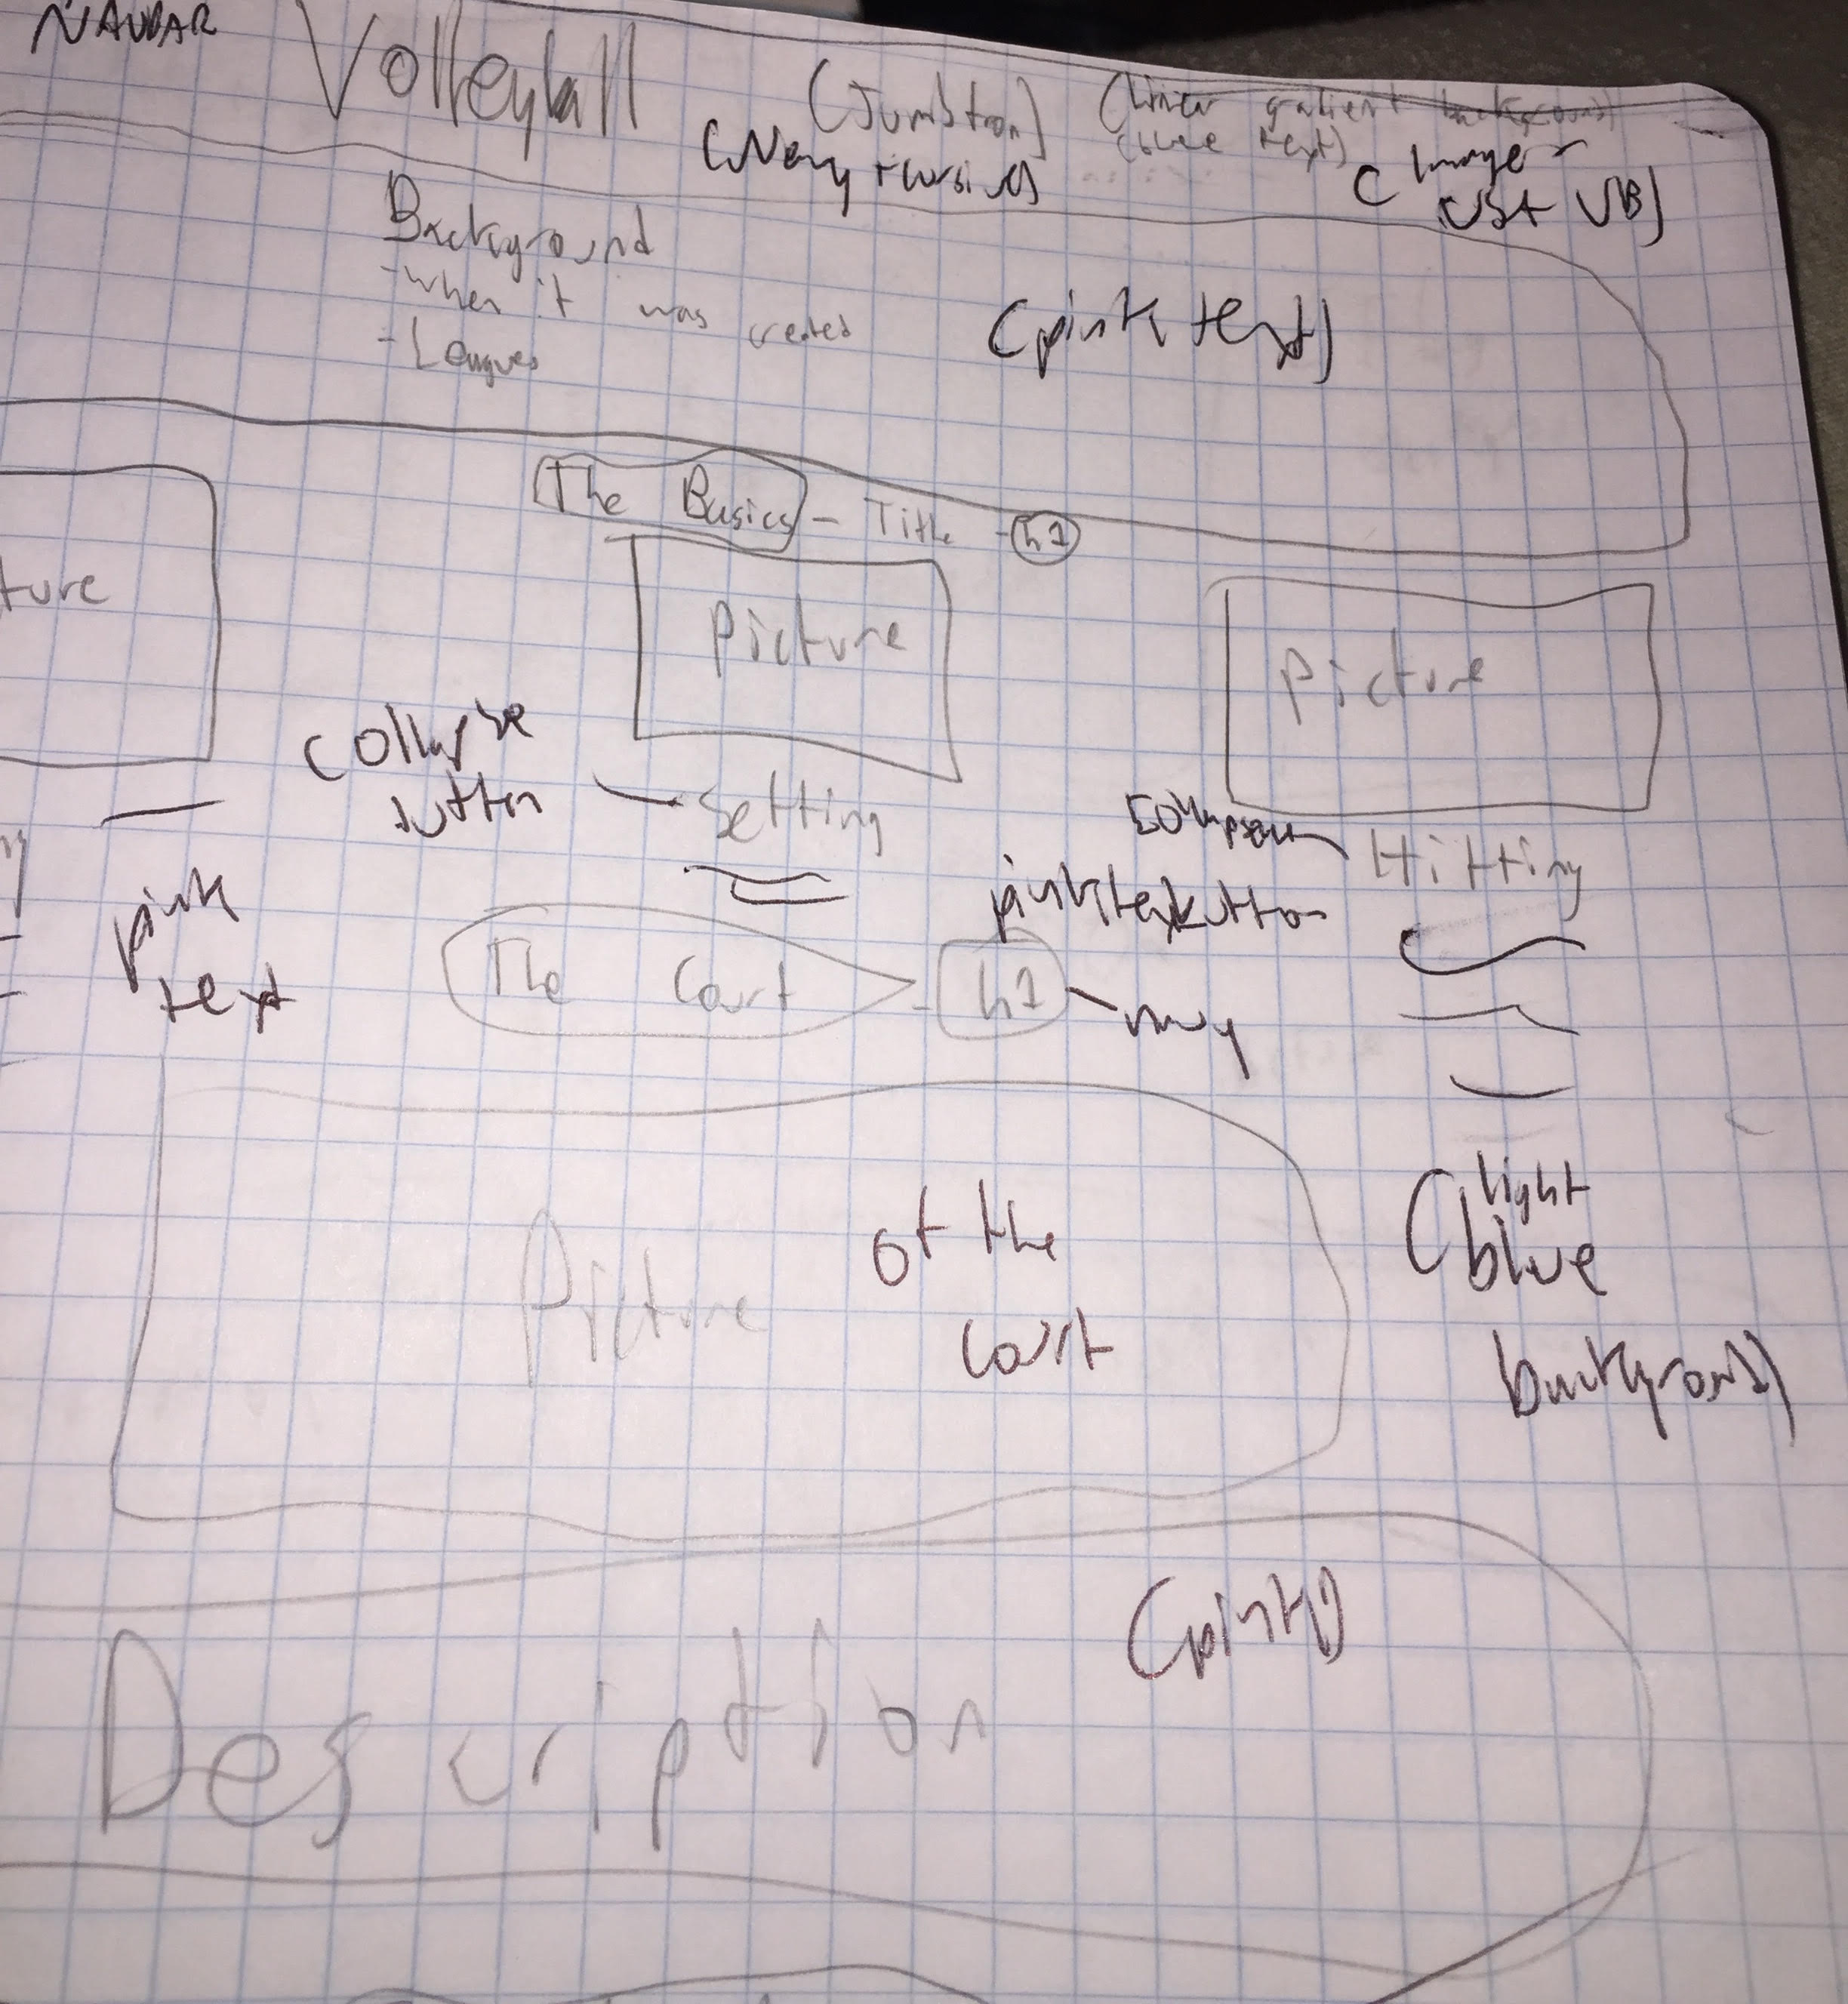 NAVBAR
Volleyball
(Jumbtron)
(linear gradient background)
(blue text)
(Navy + cursive)
(Image -
VB)
Background
- when it was created
- Leagues
(pink text)
The Basics - Title - h1
ture
Picture
Picture
collapse
button
Setting
Hitting
pink text button
pink
text
The Court - h1 - navy
Picture of the
court
(light
blue
background)
(pink)
Description